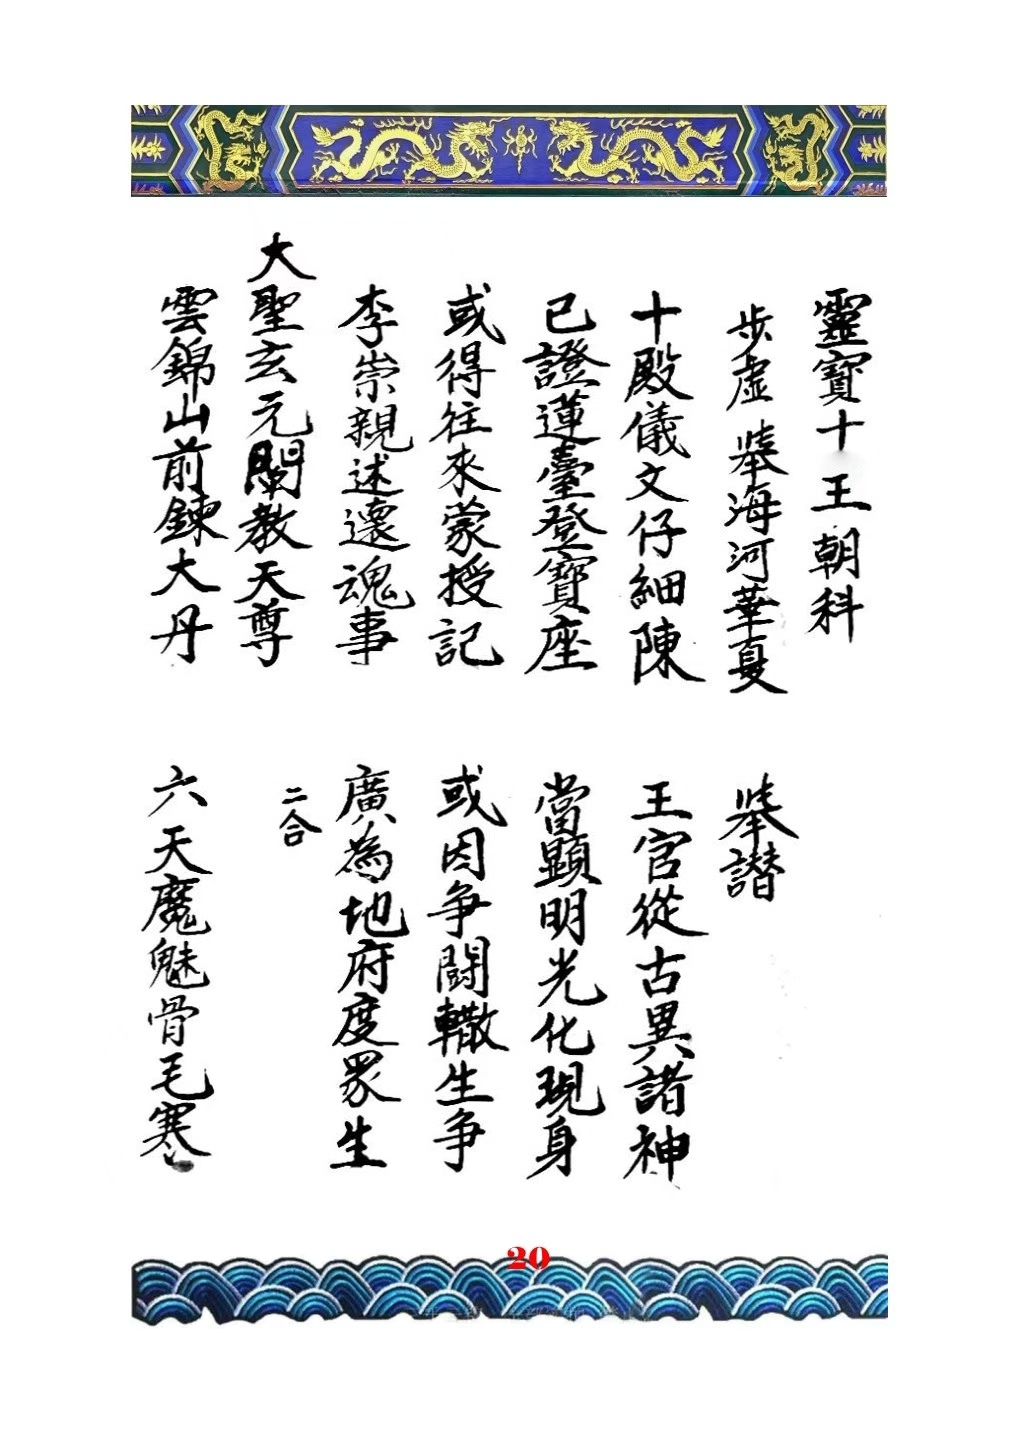 靈寶十王朝科
步虛 舉海河華夏 舉讃
十殿儀文仔細陳 王官從古異諸神
已證蓮臺登寶座 當顯明光化現身
或得往來蒙授記 或因争鬪轍生争
李崇親述還魂事 廣為地府度眾生
大聖玄元闡教天尊 二合
雲錦山前鍊大丹 六天魔魅骨毛寒
20